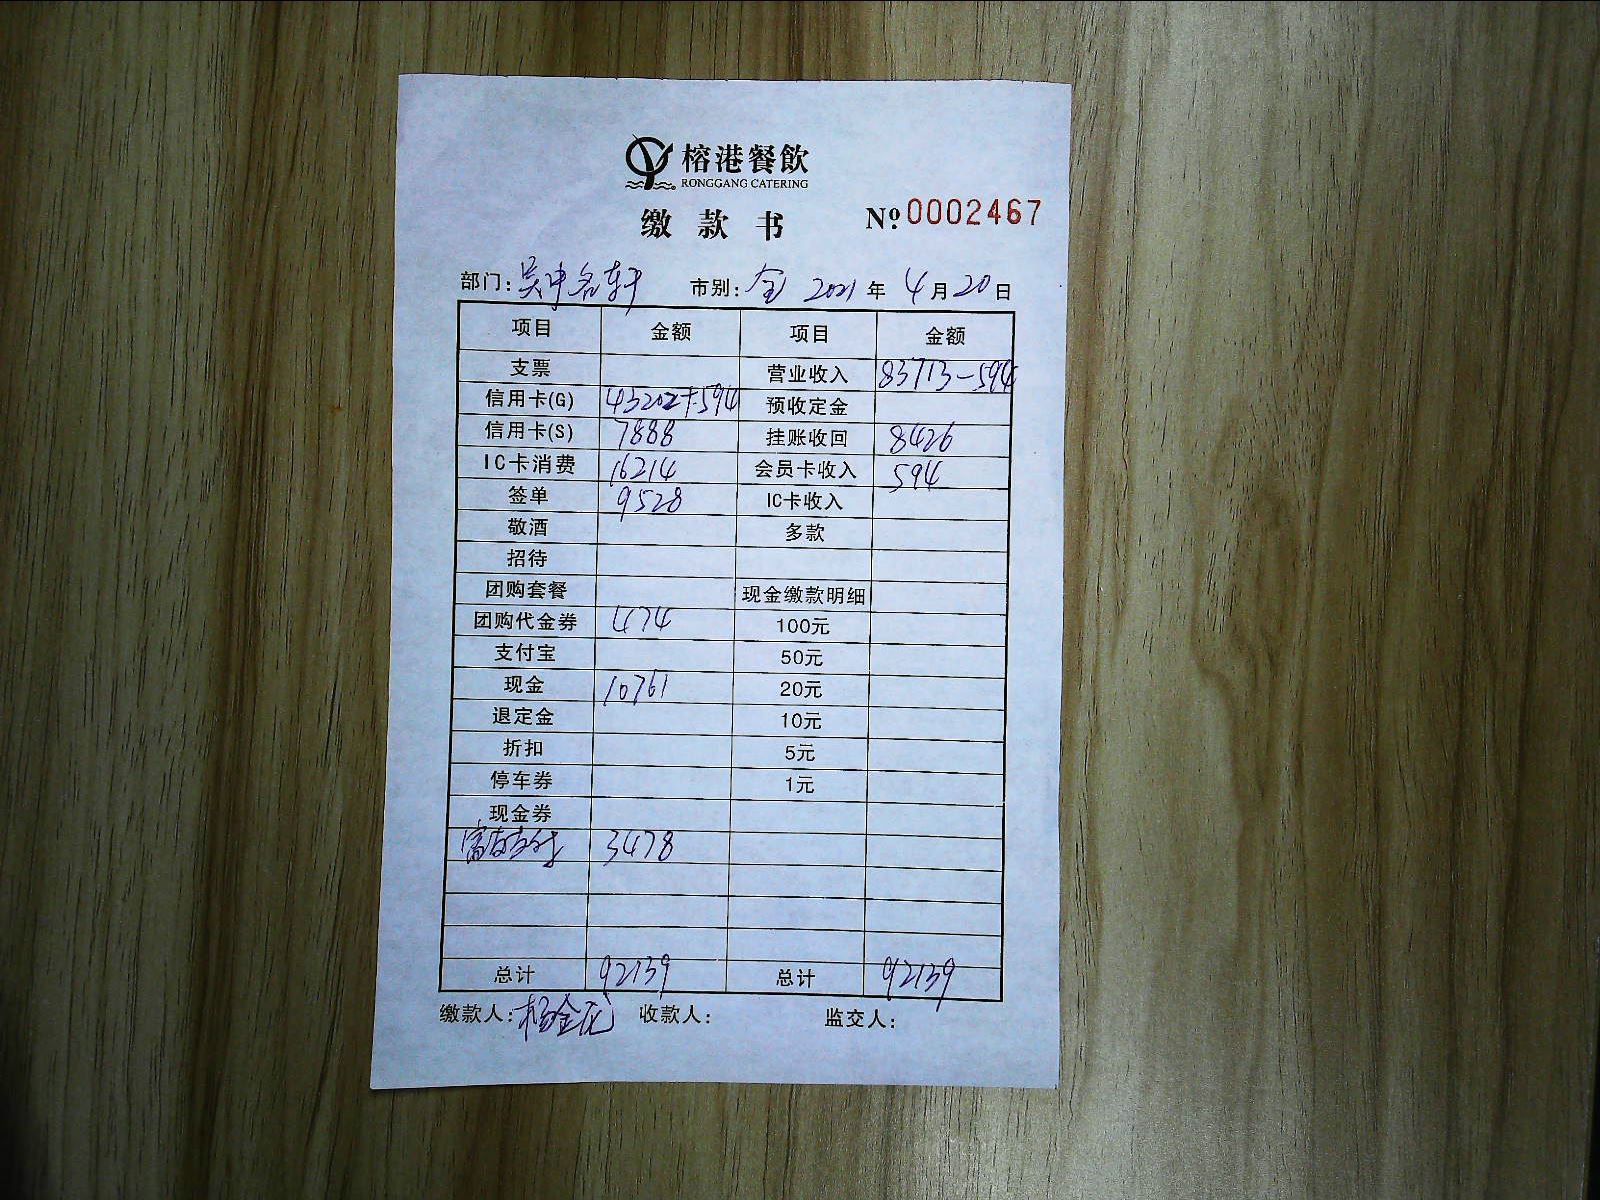 榕港餐飲
RONGGANG CATERING
缴款书 №0002467
部门:吴中名轩 市别:全 2021年4月20日
项目 金额 项目 金额
支票 营业收入 83713-594
信用卡(G) 43202+594 预收定金
信用卡(S) 7888 挂账收回 8426
IC卡消费 16214 会员卡收入 594
签单 9528 IC卡收入
敬酒 多款
招待
团购套餐 现金缴款明细
团购代金券 474 100元
支付宝 50元
现金 10761 20元
退定金 10元
折扣 5元
停车券 1元
现金券
富友支付 3478
总计 92139 总计 92139
缴款人:杨金花 收款人: 监交人: